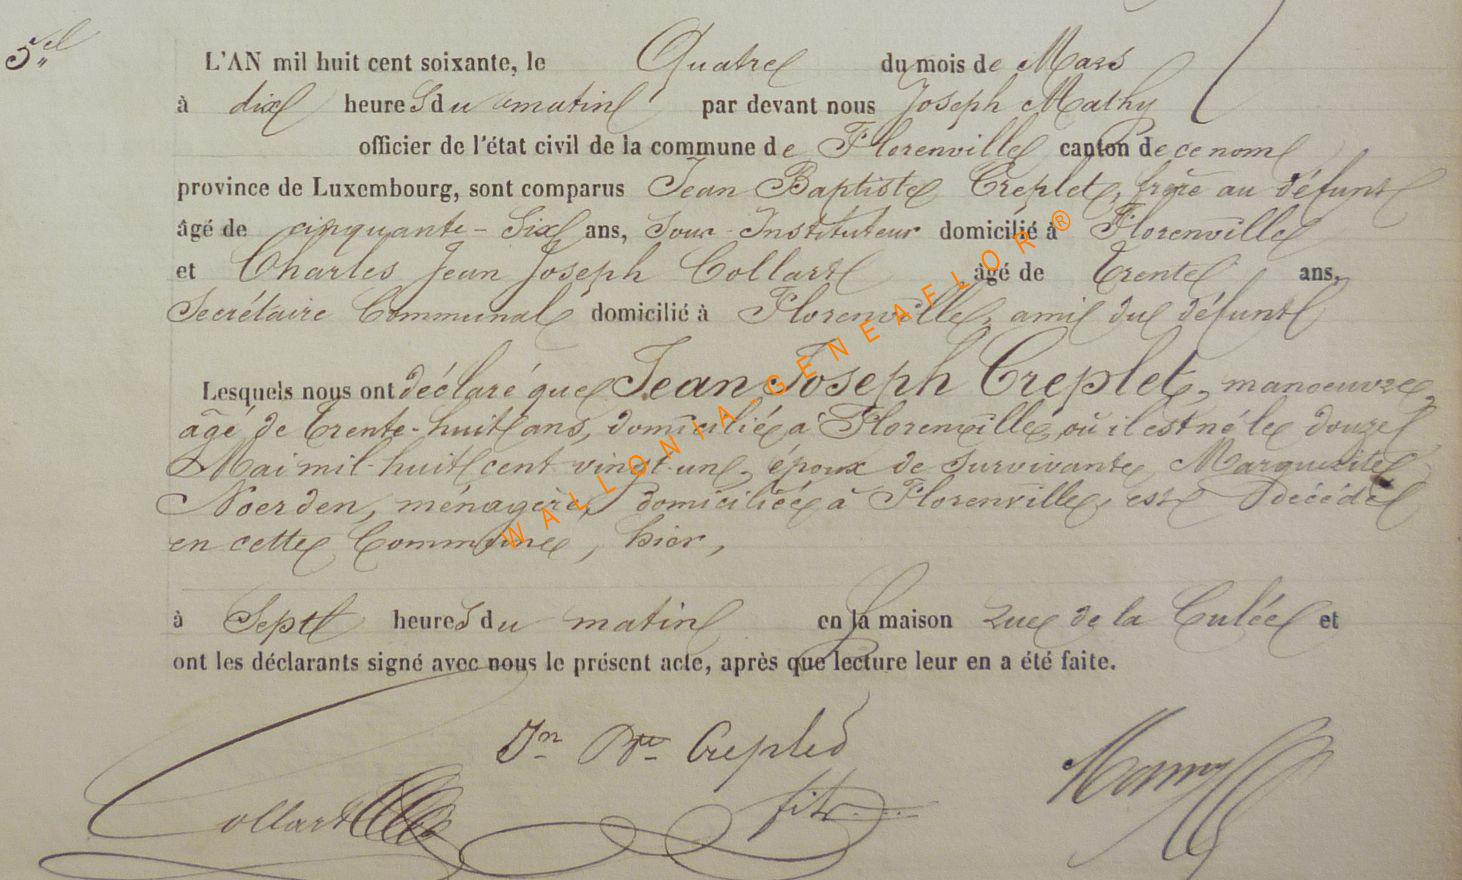 5.el
L'AN mil huit cent soixante, le Quatre du mois de Mars
à dix heures du matin par devant nous Joseph Mathy
officier de l'état civil de la commune de Florenville canton de ce nom
province de Luxembourg, sont comparus Jean Baptiste Creplet, frère au défunt
âgé de cinquante-six ans, Sous-Instituteur domicilié à Florenville
et Charles Jean Joseph Collart âgé de Trente ans,
Secrétaire Communal domicilié à Florenville, ami du défunt
Lesquels nous ont déclaré que Jean Joseph Creplet, manoeuvre,
âgé de Trente-huit ans, domicilié à Florenville, où il est né le douze
Mai mil-huit cent vingt-un, époux de survivante Marguerite
Noerden, ménagère, domiciliée à Florenville, est décédé
en cette Commune, hier,
à Sept heures du matin en la maison rue de la Culée et
ont les déclarants signé avec nous le présent acte, après que lecture leur en a été faite.
Jn Bte Creplet
Collart
WALLONIA-GENEAFLOR®